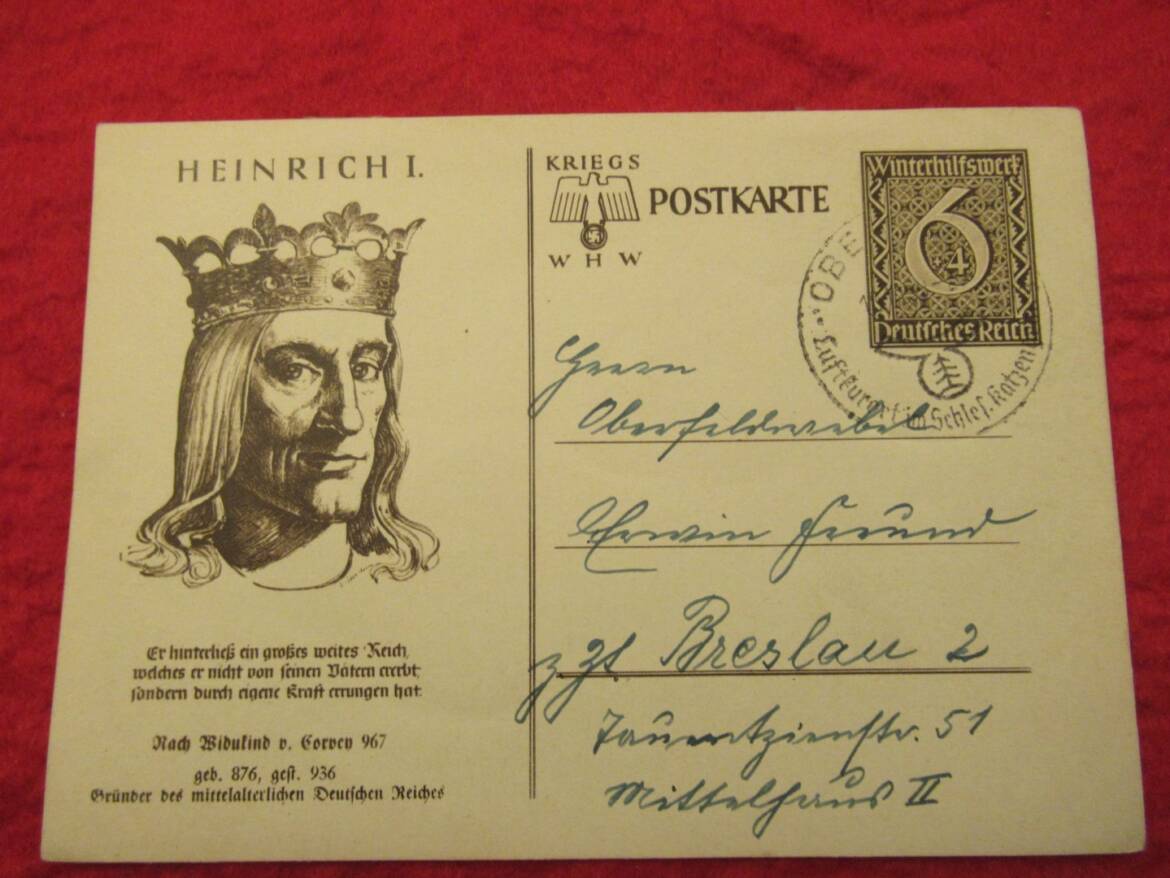 HEINRICH I.
Er hinterließ ein großes weites Reich,
welches er nicht von seinen Vätern ererbt,
sondern durch eigene Kraft errungen hat.
Nach Widukind v. Corvey 967
geb. 876, gest. 936
Gründer des mittelalterlichen Deutschen Reiches
KRIEGS
WHW
POSTKARTE
Winterhilfswerk
6
4
Deutsches Reich
OBE
Luftkurort im Schles. Katzen
Herrn
Oberfeldwebel
Erwin Freund
zzt. Breslau 2
Tauentzienstr. 51
Mittelhaus II